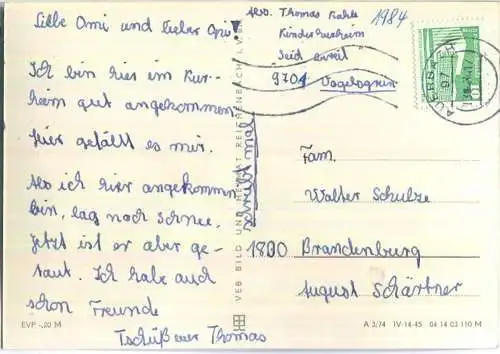 Liebe Omi und lieber Opi!
Ich bin hier im Kur-
heim gut angekommen
hier gefällt es mir.
Als ich hier angekommen
bin, lag noch Schnee.
Jetzt ist er aber ge-
taut. Ich habe auch
schon Freunde
Tschüß euer Thomas
schreibt mal
EVP -,20 M
VEB BILD UND HEIMAT REICHENBACH I. V.
Abs. Thomas
1984
Kinderkurheim
9701 Vogelsgrün
AUERBACH
97
10
Fam.
Walter Schulze
1800 Brandenburg
August Schärtner
A 3/74 IV-14-45 04 14 03 110 M